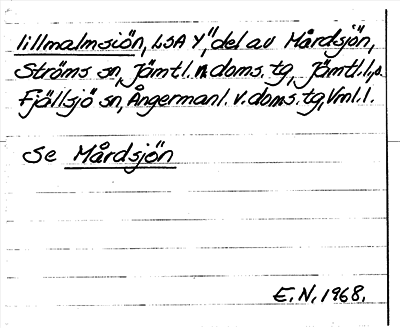 lillmalmsiön, LSA Y, "del av Mårdsjön,
Ströms sn, Jämtl. n. doms. tg, Jämtl. l., o.
Fjällsjö sn, Ångermanl. v. doms. tg, Vnl. l.
Se Mårdsjön
E. N. 1968.